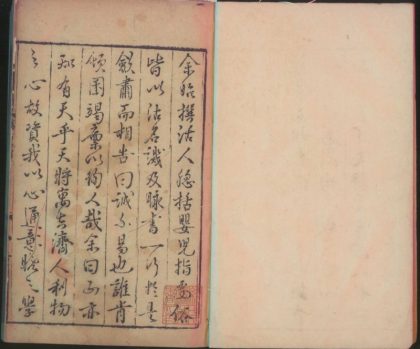 余始撰活人總括嬰兒指要俗
皆以活名識及脉書一行於是
餘肅而相告曰誠不易也誰肯
傾囷竭藁以徇人哉余曰而亦
知有天乎天將寓吾濟人利物
之心故資我以心通意曉之學